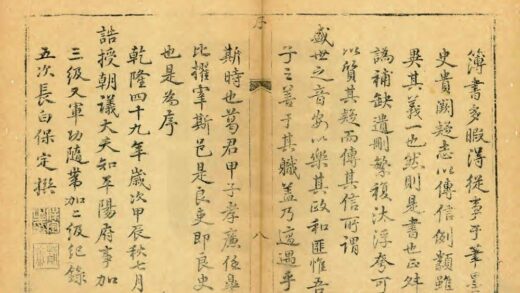 簿書多暇得從事于筆墨
史貴闕疑志以傳信例類雖
異其義一也然則是書也正舛
譌補缺遺刪繁複汰浮夸可
以質其疑而傳其信所謂
盛世之音安以樂其政和匪惟吾
子之善于其職盖乃遭遇乎
序
八
斯時也葛君甲子孝廉任
比擢宰斯邑是良吏即良史
也是為序
乾隆四十九年歲次甲辰秋七月
誥授朝議大夫知平陽府事加
三級又軍功隨帶加二級紀錄
五次長白保定撰